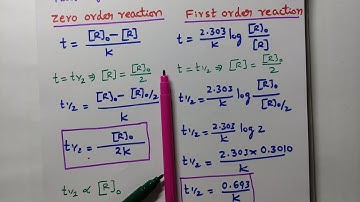 Zero order reaction
t = [R]₀ - [R] / k
t = t₁/₂ ⇒ [R] = [R]₀ / 2
t₁/₂ = [R]₀ - [R]₀/2 / k
t₁/₂ = [R]₀ / 2k
t₁/₂ ∝ [R]₀
First order reaction
t = 2.303 / k log [R]₀ / [R]
t = t₁/₂ ⇒ [R] = [R]₀ / 2
t₁/₂ = 2.303 / k log [R]₀ / [R]₀/2
t₁/₂ = 2.303 / k log 2
t₁/₂ = 2.303 x 0.3010 / k
t₁/₂ = 0.693 / k